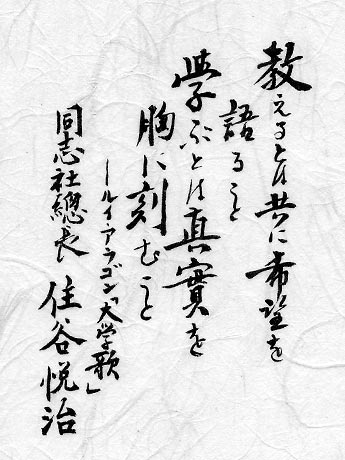 教えるとは共に希望を
語ること
学ぶとは真實を
胸に刻むこと
―ルイ・アラゴン「大学歌」
同志社總長 住谷悦治